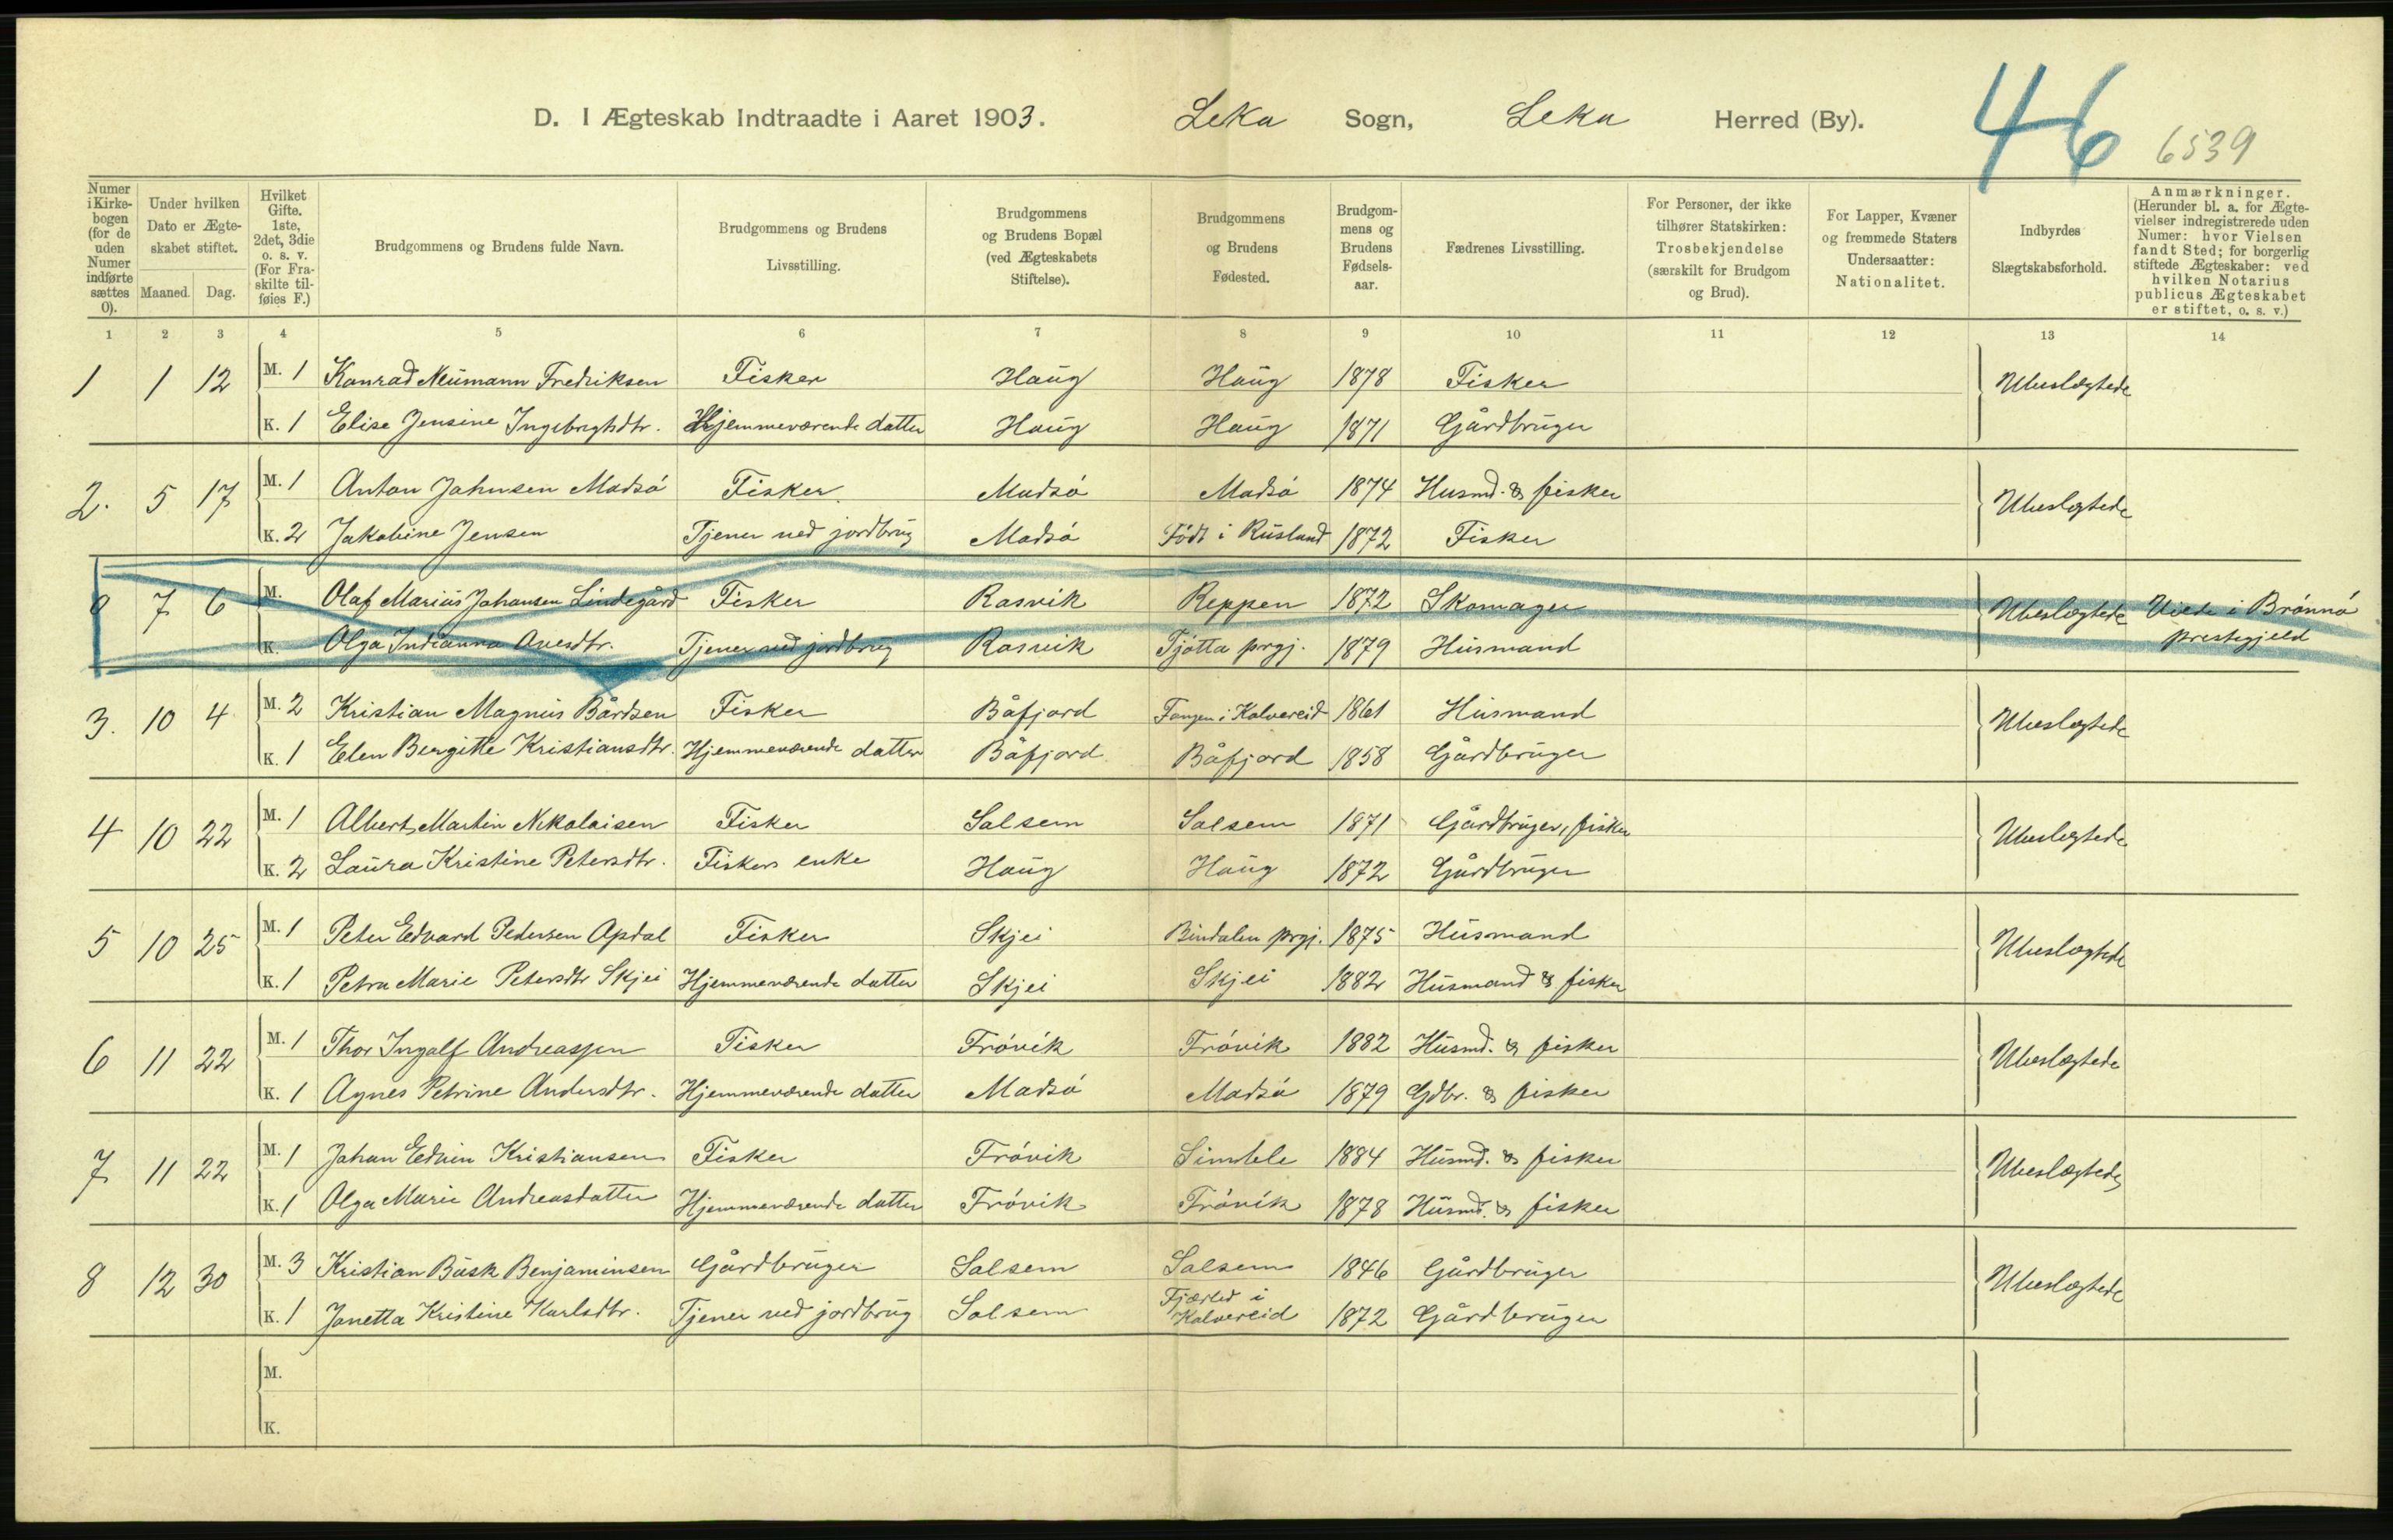 D. I Ægteskab Indtraadte i Aaret 1903. Leka Sogn, Leka Herred (By). 46 6539
Numer i Kirkebogen (for de uden Numer indførte sættes 0). Under hvilken Dato er Ægteskabet stiftet. Maaned. Dag. Hvilket Gifte. 1ste, 2det, 3die o. s. v. (For Fraskilte tilføies F.) Brudgommens og Brudens fulde Navn. Brudgommens og Brudens Livsstilling. Brudgommens og Brudens Bopæl (ved Ægteskabets Stiftelse). Brudgommens og Brudens Fødested. Brudgommens og Brudens Fødselsaar. Fædrenes Livsstilling. For Personer, der ikke tilhører Statskirken: Trosbekjendelse (særskilt for Brudgom og Brud). For Lapper, Kvæner og fremmede Staters Undersaatter: Nationalitet. Indbyrdes Slægtskabsforhold. Anmærkninger. (Herunder bl. a. for Ægtevielser indregistrerede uden Numer: hvor Vielsen fandt Sted; for borgerlig stiftede Ægteskaber: ved hvilken Notarius publicus Ægteskabet er stiftet, o. s. v.)
1 2 3 4 5 6 7 8 9 10 11 12 13 14
1 1 12 M. 1 Konrad Neumann Fredriksen Fisker Haug Haug 1878 Fisker Ubeslægtede
K. 1 Elise Jensine Ingebrigtsdtr. Hjemmeværende datter Haug Haug 1871 Gårdbruger
2. 5 17 M. 1 Anton Johnsen Madsö Fisker. Madsö Madsö 1874 Husmd. & fisker Ubeslegtede
K. 2 Jakobine Jensen Tjener ved jordbrug Madsö Född i Rusland 1872 Fisker
0 7 6 M. Olaf Marius Johansen Lindegård Fisker Rasvik Reppen 1872 Skomager Ubeslegtede Viede i Brönnö
K. Olga Indianna Anesdtr. Tjener ved jordbrug Rasvik Tjötta prgj. 1879 Husmand prestegjeld
3. 10 4 M. 2 Kristian Magnus Bårdsen Fisker Båfjord i Kolvereid 1861 Husmand Ubeslægtede
K. 1 Elen Bergitte Kristiansdtr. Hjemmeværende datter Båfjord Båfjord 1858 Gårdbruger
4 10 22 M. 1 Albert Martin Nikolaisen Fisker Salsem Salsem 1871 Gårdbruger, fisker Ubeslegtede
K. 2 Laura Kristine Petersdtr. Fiskers enke Haug Haug 1872 Gårdbruger
5 10 25 M. 1 Peter Edvard Pedersen Apdal Fisker Skjei Bindalen prgj. 1875 Husmand Ubeslægtede
K. 1 Petra Marie Petersdtr Skjei Hjemmeværende datter Skjei Skjei 1882 Husmand & fisker
6 11 22 M. 1 Thor Ingolf Andreassen Fisker Frövik Frövik 1882 Husmd. & fisker Ubeslægtede
K. 1 Agnes Petrine Andersdtr. Hjemmeværende datter Madsö Madsö 1879 Gdbr. & fisker
7 11 22 M. 1 Johan Edvin Kristiansen Fisker Frövik Simle 1884 Husmd. & fisker Ubeslægtede
K. 1 Olga Marie Andreasdatter Hjemmeværende datter Frövik Frövik 1878 Husmd. & fisker
8 12 30 M. 3 Kristian Busk Benjaminsen Gårdbruger Salsem Salsem 1846 Gårdbruger Ubeslægtede
K. 1 Janetta Kristine Karlsdtr. Tjener ved jordbrug Salsem i Kolvereid 1872 Gårdbruger
M.
K.